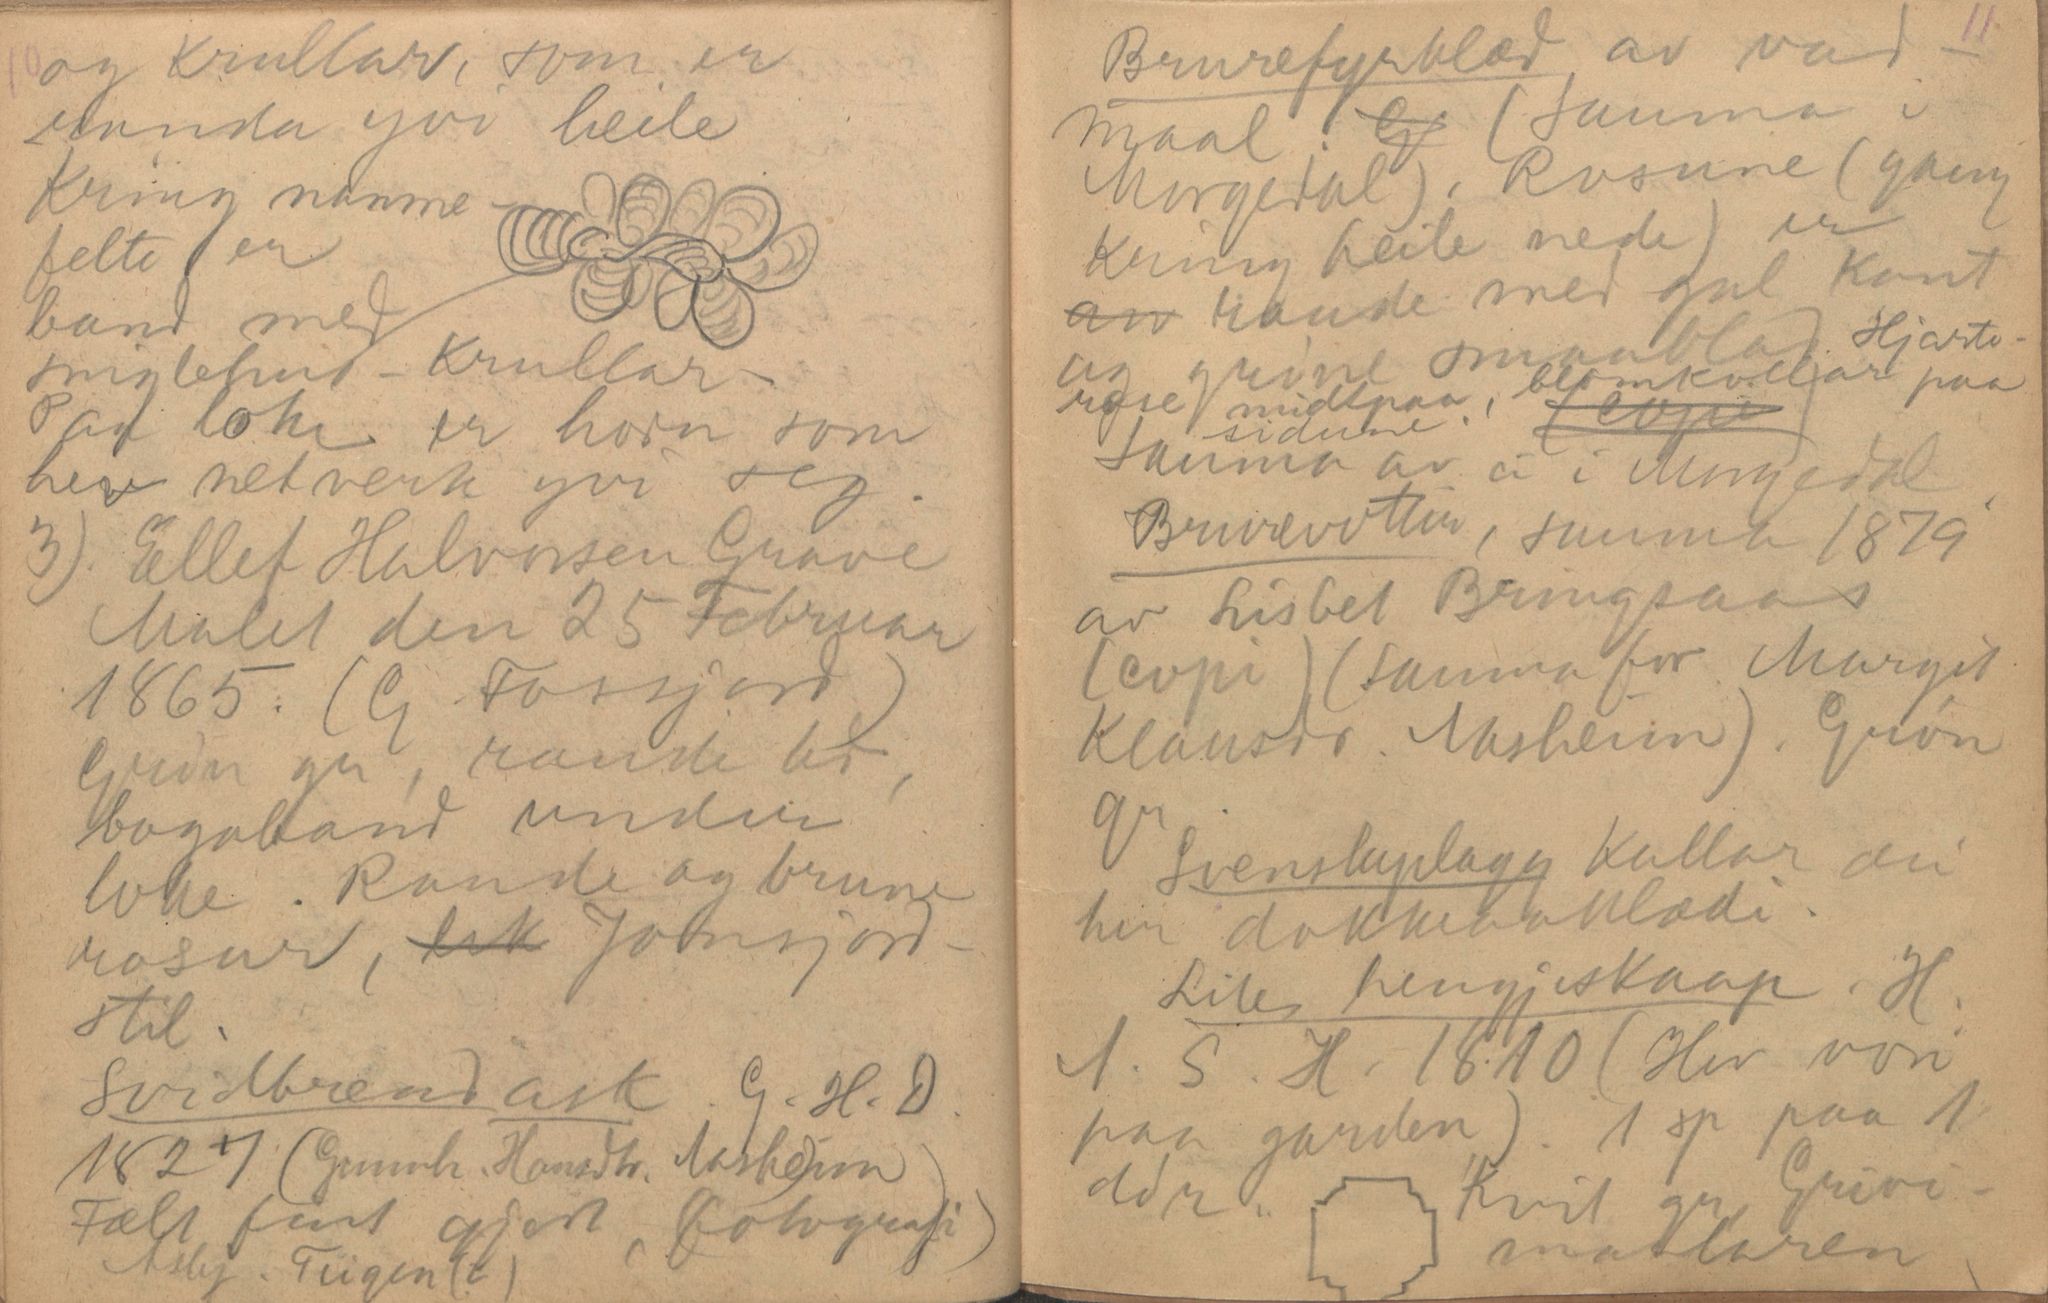 10
og Krullar, som er
runda yvi heile
Kring namne-
felte er
band med
sniglehus-Krullar-
Paa loke er horn som
heve netverk yvi seg.
3). Ellef Halvorsen Grave
Malet den 25 Februar
1865. (G Fossjord)
Grøn gr, raude bd,
bogaband under
loke. Raude og brune
rosur, Jonsjord-
stil.
Svidbrend ask. G. H. D.
1827 (Gunnh. Hansdtr. Aasheim)
Fælt fint gjort, (Fotografi)
Asbj.
11.
Brurefyrklæd av vad-
maal. G (Sauma i
Morgedal). Rosune (gaang
Kring heile nede) er
av raude med gul Kant
og grøne smaablad. Hjarte-
rose midtpaa, blomkvistar paa
sidune. (copi)
Sauma av ei i Morgedal.
Brurevottir, sauma 1879
av Lisbet Bringsaas
(copi) (sauma for Margit
Klausdr. Aasheim). Grøn
gr.
Svenskeplagg Kallar dei
her dokkeaaklædi.
Lite hengjeskaap. H.
A. S. H. 1810 (Hev vori
paa garden). 1 sp paa 1
dør. Kvit gr. Grivi-
maalaren